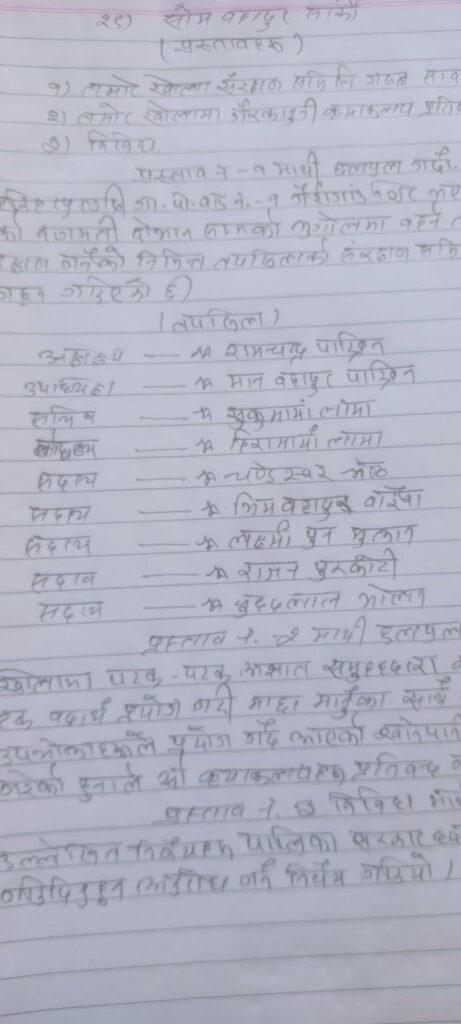 २९) सोम बहादुर सार्की
(प्रस्तावहरू)
१) तमोर खोला संरक्षण समिति गठन सम्ब
२) तमोर खोलामा गैरकानुनी क्रयाकलाप प्रति
३) विविध,
प्रस्ताव नं - १ माथी छलफल गर्दा
गा. पा. वडा नं. - १
को भुगोलमा बहने
गर्नको निमित्त तपसिलको संरक्षण समि
गठन गरिएको छ।
(तपसिल)
अध्यक्ष — श्री रामचन्द्र पाख्रिन
उपाध्यक्ष — श्री मान बहादुर पाख्रिन
सचिव — श्री सुकुमाया लामा
कोषाध्यक्ष — श्री हिरामाया लामा
सदस्य — श्री चण्डेस्वर
सदस्य — श्री भिम बहादुर वाईबा
सदस्य — श्री लक्ष्मी पुन मुलान
सदस्य — श्री रामन पुरकोटी
सदस्य — श्री बुद्दलाल मोलन
प्रस्ताव नं. - २ माथी छलफल
खोलामा पटक - पटक अज्ञात समुहद्वारा
पदार्थ प्रयोग गरी माछा मार्नुका साथै
उपभोक्ताहरूले प्रयोग गर्दै आएको खानेपानी
गरेको हुनाले यो क्रयाकलापहरू प्रतिबन्द
प्रस्ताव नं. ३ विविध माथी
उल्लेखित निर्णयहरू पालिका सरकार
गरिदिनुहुन अनुरोध गर्ने निर्णय गरियो।